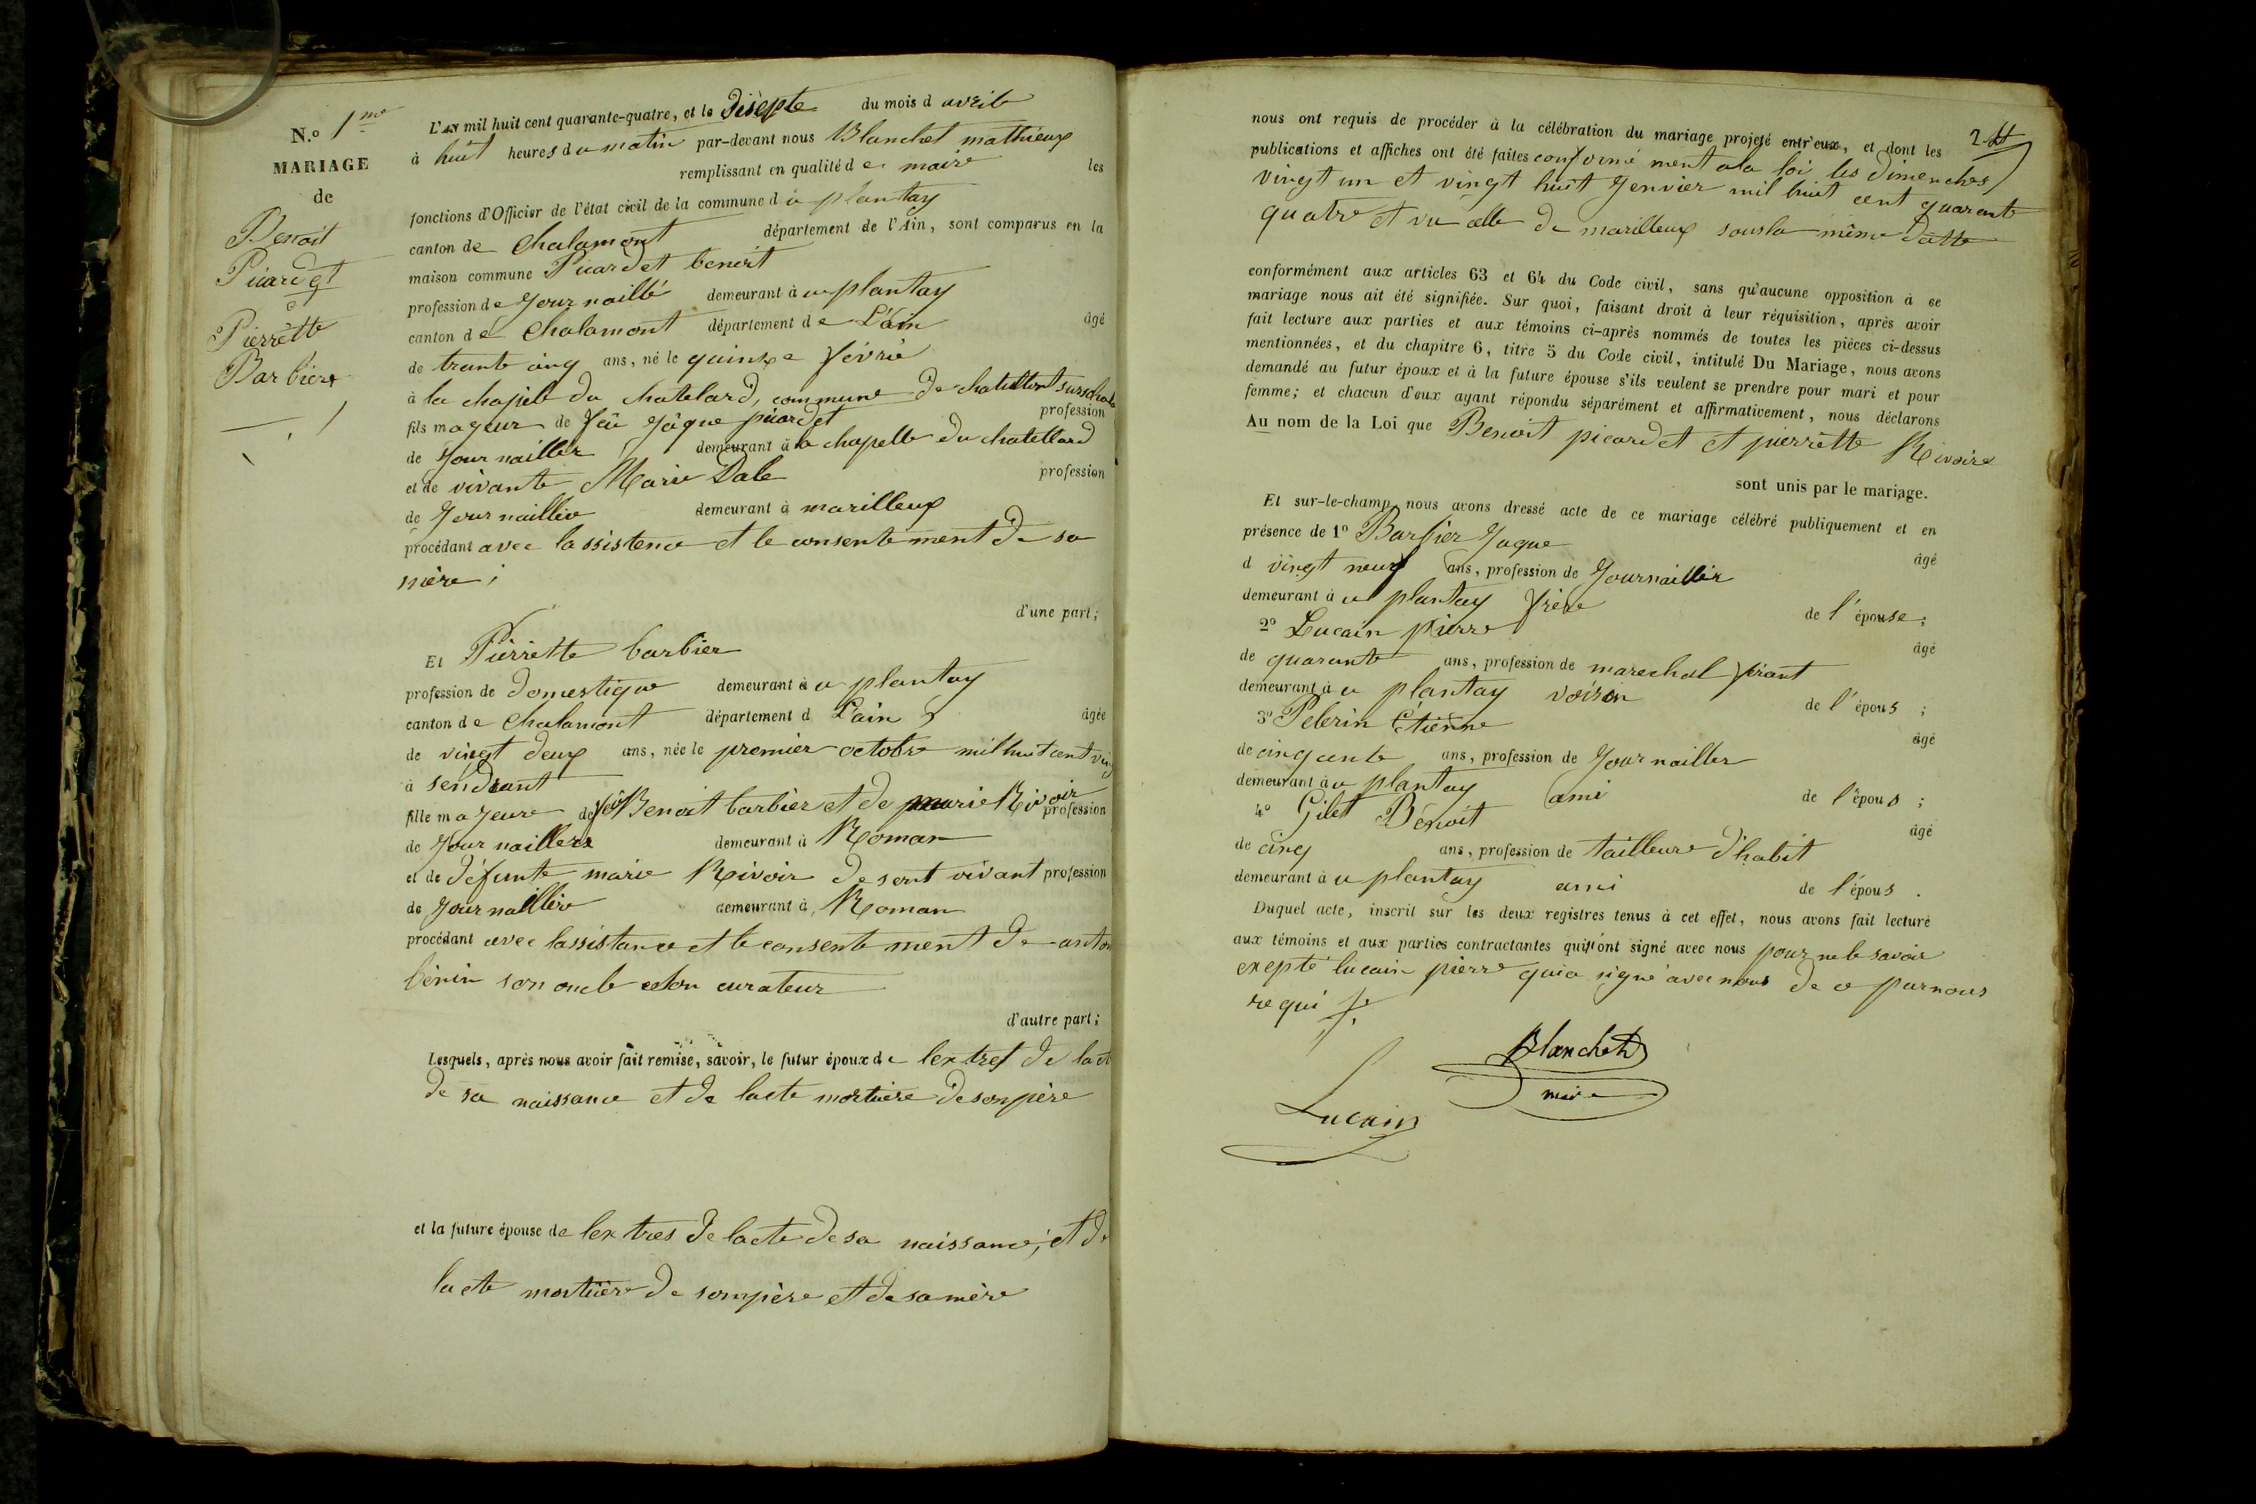 N.o 1me
MARIAGE
de
Benoit
Picardet
et
Pierrette
Barbier
L'AN mil huit cent quarante-quatre, et le disèpte du mois d avrile
à huit heures du matin par-devant nous Blanchet mathieux
remplissant en qualité de maire les
fonctions d'Officier de l'état civil de la commune d u plantay
canton de Chalamont département de l'Ain, sont comparus en la
maison commune Picardet benoit
profession de journaillé demeurant à u plantay
canton de Chalamont département de L'ain âgé
de trante cinq ans, né le quinze févrié
à la chapele du chatelard, commune de
fils mageur de feu jâque picardet profession
de journailler demeurant à la chapelle du chatellard
et de vivante Marie Dale profession
de journaillère demeurant à marilleux
procédant avec lassistence et le consentement de sa
mère ;
d'une part;
Et Pierrette barbier
profession de domestique demeurant à u plantay
canton de Chalamont département d L'ain âgée
de vingt deux ans, née le premier octobre mil huit cent
à sendrant
fille mageure de feu Benoit barbier et de marie Rivoir profession
de journaillere demeurant à Roman
et de défunte marie Rivoir de sont vivant profession
de journaillère demeurant à Roman
procédant avec lassistance et le consentement de
bénin son oncle et son curateur
d'autre part;
Lesquels, après nous avoir fait remise, savoir, le futur époux de lextret de lact
de sa naissance et de lacte mortuère de son père
et la future épouse de lextres de lacte de sa naissance, et de
lacte mortuère de son père et de sa mère
2
nous ont requis de procéder à la célébration du mariage projeté entr'eux, et dont les
publications et affiches ont été faites conformément a la loi les dimenches
vingt un et vingt huit genvier mil huit cent quarante
quatre et vu celle de marilleux sous la même datte
conformément aux articles 63 et 64 du Code civil, sans qu'aucune opposition à ce
mariage nous ait été signifiée. Sur quoi, faisant droit à leur réquisition, après avoir
fait lecture aux parties et aux témoins ci-après nommés de toutes les pièces ci-dessus
mentionnées, et du chapitre 6, titre 5 du Code civil, intitulé Du Mariage, nous avons
demandé au futur époux et à la future épouse s'ils veulent se prendre pour mari et pour
femme; et chacun d'eux ayant répondu séparément et affirmativement, nous déclarons
Au nom de la Loi que Benoit picardet et pierrette Rivoire
sont unis par le mariage.
Et sur-le-champ nous avons dressé acte de ce mariage célébré publiquement et en
présence de 1o Barbier Jaque âgé
d vingt neuf ans, profession de journaillier
demeurant à u plantay frère de l'épouse;
2o Lucain pierre âgé
de quarante ans, profession de marechal férant
demeurant à u plantay voison de l'épous ;
3o Pelerin Étienne âgé
de cinqante ans, profession de journailler
demeurant à u plantay ami de l'épous ;
4o Gilet Bénoit âgé
de cinq ans, profession de tailleure d'habit
demeurant à u plantay ami de l'épous .
Duquel acte, inscrit sur les deux registres tenus à cet effet, nous avons fait lecture
aux témoins et aux parties contractantes qui n'ont signé avec nous pour ne le savoir
exepté lucain pierre qui a signé avec nous de ce par nous
requi
Blanchet
maire
Lucain